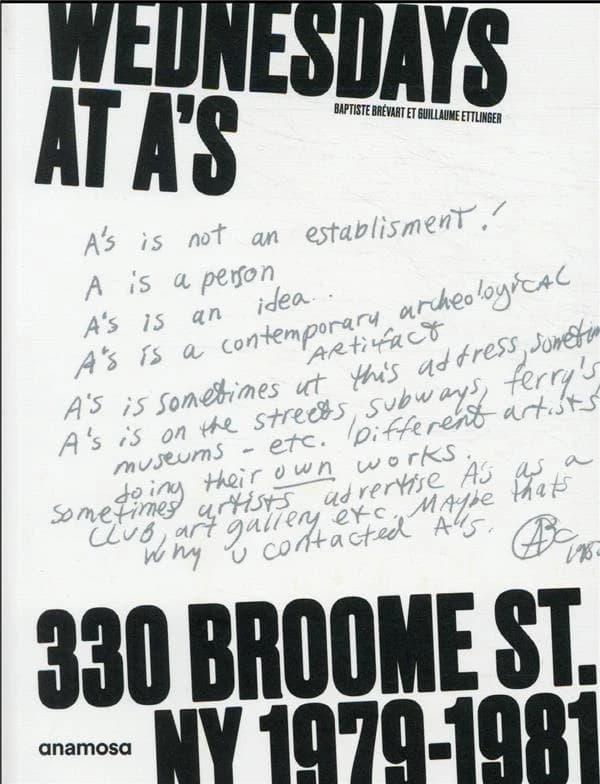 WEDNESDAYS
AT A'S
BAPTISTE BRÉVART ET GUILLAUME ETTLINGER
A's is not an establisment!
A is a person
A's is an idea..
A's is a contemporary archeological
ARtifact
A's is sometimes at this address, sometim
A's is on the streets, subways, ferry's
museums - etc. Different artists
doing their own works.
sometimes artists advertise A's as a
CLUB, art gallery etc. MAybe thats
why u contacted A's.
330 BROOME ST.
anamosa
NY 1979-1981